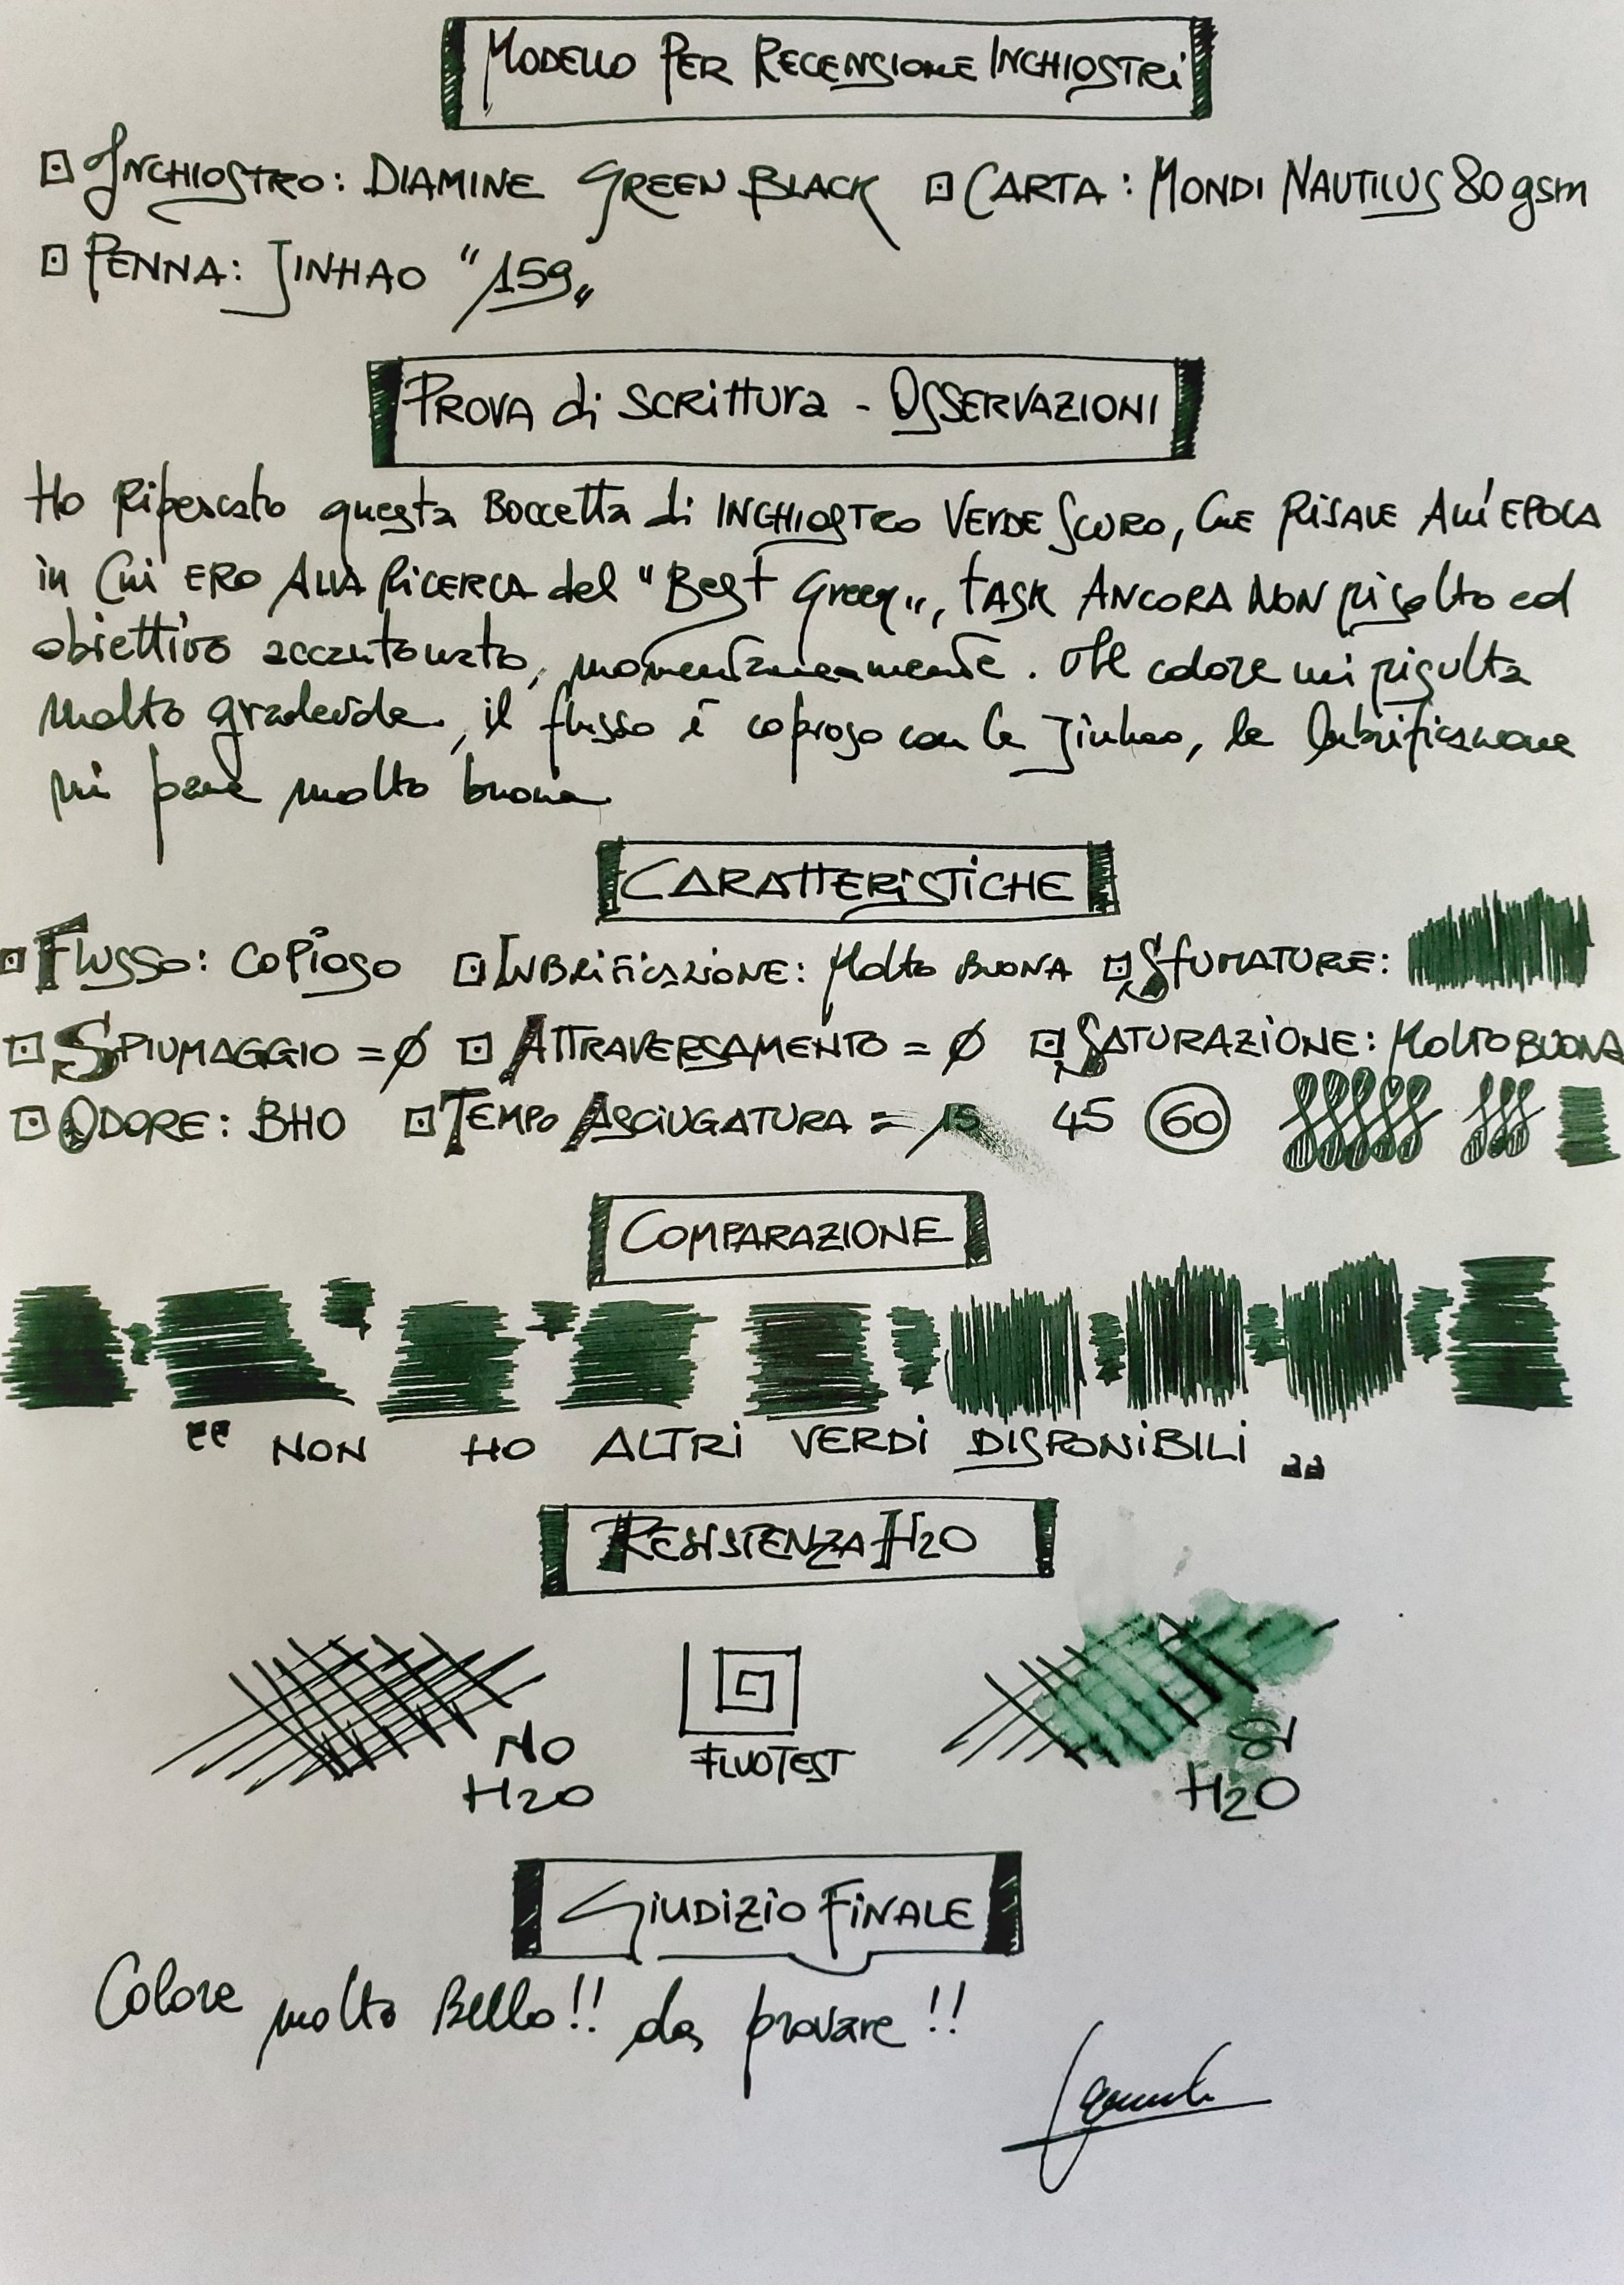 MODELLO PER RECENSIONE INCHIOSTRI
INCHIOSTRO: DIAMINE GREEN BLACK CARTA: MONDI NAUTILUS 80 gsm
PENNA: JINHAO "159"
PROVA di SCRITTURA - OSSERVAZIONI
Ho Ripescato questa BOCCETTA di INCHIOSTRO VERDE SCURO, CHE RISALE ALL'EPOCA
in Cui ERO ALLA RICERCA del "Best Green", TASK ANCORA NON risolto ed
obiettivo accantonato, momentaneamente. Il colore mi risulta
molto gradevole, il flusso è copioso con la Jinhao, la lubrificazione
mi pare molto buona
CARATTERISTICHE
FLUSSO: COPIOSO LUBRIFICAZIONE: MOLTO BUONA SFUMATURE:
SPIUMAGGIO = Ø ATTRAVERSAMENTO = Ø SATURAZIONE: MOLTO BUONA
ODORE: BHO TEMPO ASCIUGATURA = 15 45 60
COMPARAZIONE
"NON HO ALTRI VERDI DISPONIBILI"
RESISTENZA H2O
NO
H2O
FLUOTEST
SI
H2O
GIUDIZIO FINALE
Colore molto Bello!! da provare!!